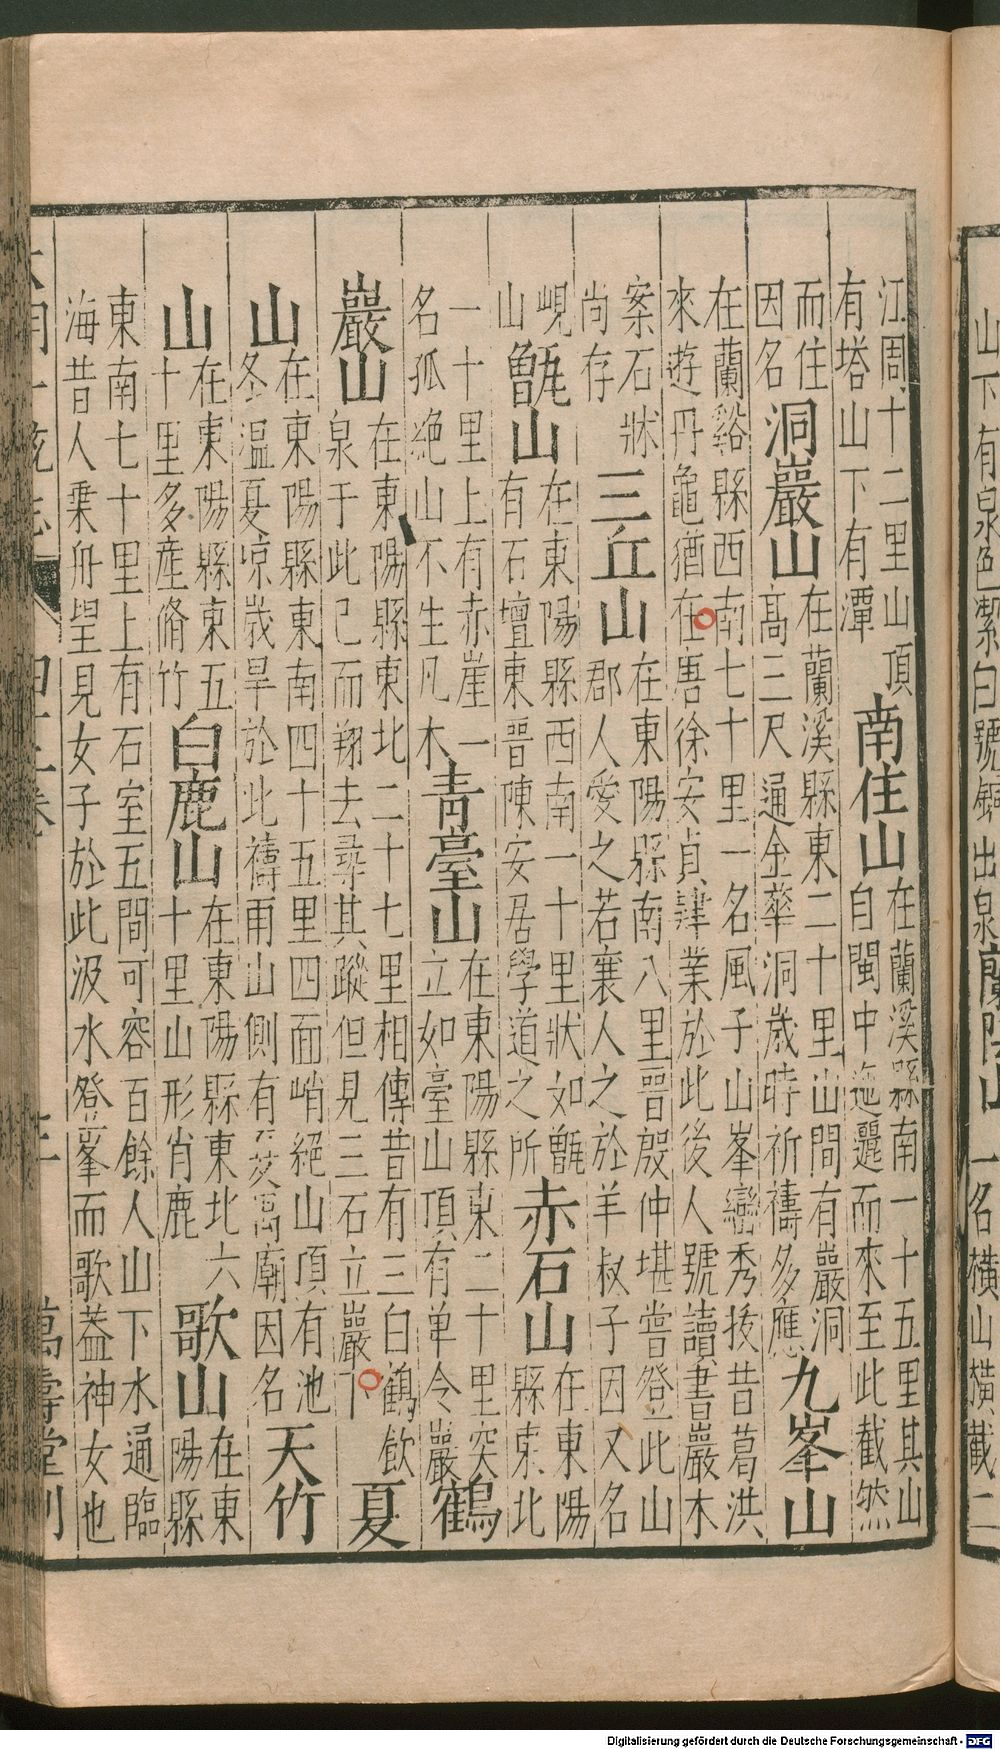 山下有泉色潔白號
出泉
蘭陰山
一名橫山橫截二
江周十二里山頂
有塔山下有潭
南住山
在蘭溪縣南一十五里其山
自閩中迤邐而來至此截然
而住
因名
洞巖山
在蘭溪縣東二十里山間有巖洞
高三尺通金華洞歲時祈禱多應
九峯山
在蘭谿縣西南七十里一名風子山峯巒秀拔昔葛洪
來遊丹龜猶在唐徐安貞肄業於此後人號讀書巖木
案石狀
尚存
三丘山
在東陽縣南八里晉殷仲堪嘗登此山
郡人愛之若襄人之於羊叔子因又名
峴
山
甑山
在東陽縣西南一十里狀如甑
有石壇東晉陳安居學道之所
赤石山
在東陽
縣東北
一十里上有赤崖一
名孤絶山不生凡木
青臺山
在東陽縣東二十里突
立如臺山頂有单令巖
鶴
巖山
在東陽縣東北二十七里相傳昔有三白鶴飲
泉于此已而翔去尋其蹤但見三石立巖下
夏
山
在東陽縣東南四十五里四面峭絶山頂有池
冬温夏凉歲旱於此禱雨山側有廟因名
天竹
山
在東陽縣東五
十里多產脩竹
白鹿山
在東陽縣東北六
十里山形肖鹿
歌山
在東
陽縣
東南七十里上有石室五間可容百餘人山下水通臨
海昔人乗舟望見女子於此汲水登峯而歌葢神女也
大明一統志
四十二卷
三
萬壽堂刊
Digitalisierung gefördert durch die Deutsche Forschungsgemeinschaft - DFG